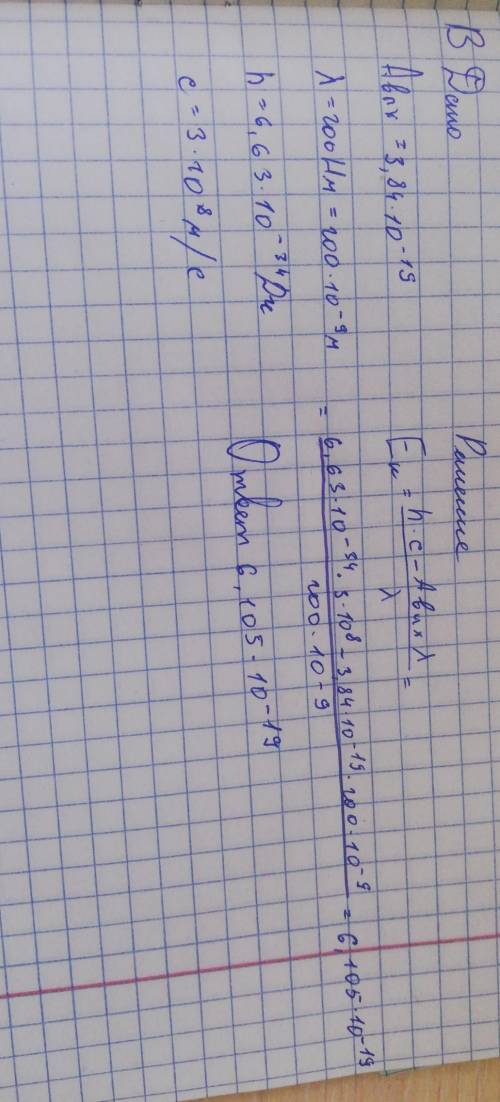 В Дано
Aвых = 3,84·10⁻¹⁹
λ = 200 Нм = 200·10⁻⁹ м
h = 6,63·10⁻³⁴ Дж
c = 3·10⁸ м/с
Решение
Eк = h·c – Aвых λ / λ =
= 6,63·10⁻³⁴·3·10⁸ – 3,84·10⁻¹⁹·200·10⁻⁹ / 200·10⁻⁹ = 6,105·10⁻¹⁹
Ответ 6,105·10⁻¹⁹